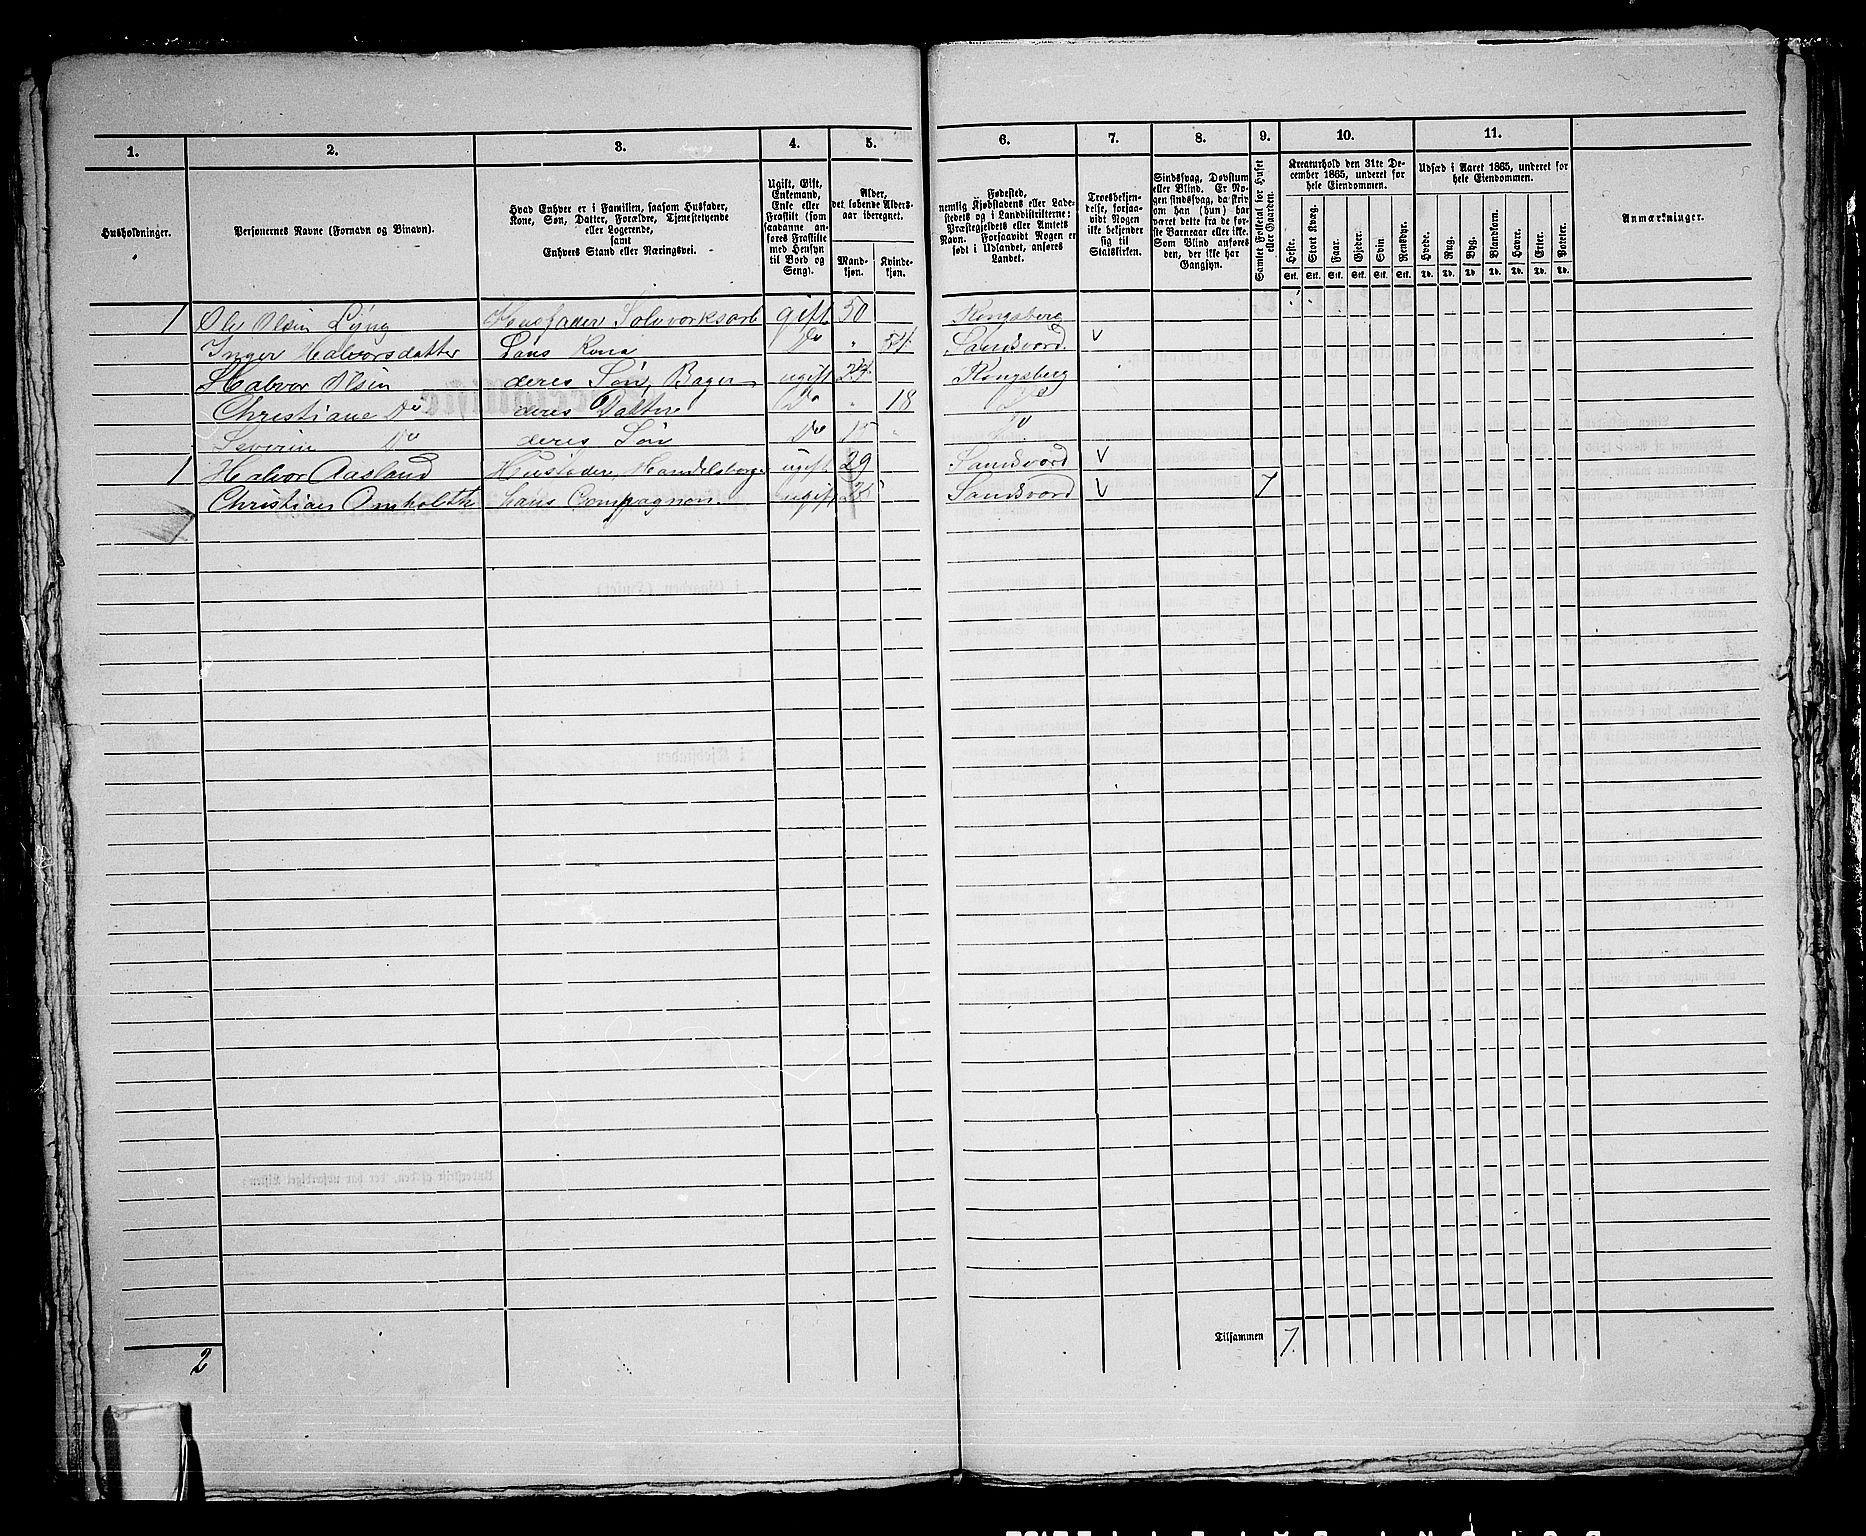 1. 2. 3. 4. 5. 6. 7. 8. 9. 10. 11.
Husholdninger.
Personernes Navne (Fornavn og Binavn).
Hvad Enhver er i Familien, saasom Husfader,
Kone, Søn, Datter, Forældre, Tjenestetyende
eller Logerende,
samt
Enhvers Stand eller Næringsvei.
Ugift, Gift,
Enkemand,
Enke eller
Fraskilt (som
saadanne an-
føres Fraskilte
med Hensyn
til Bord og
Seng).
Alder,
det løbende Alders-
aar iberegnet.
Mand-
kjøn.
Kvinde-
kjøn.
Fødested,
nemlig Kjøbstadens eller Lade-
stedets og i Landdistrikterne:
Præstegjeldets eller Amtets
Navn. Forsaavidt Nogen er
født i Udlandet, anføres
Landet.
Troesbekjen-
delse, forsaa-
vidt Nogen
ikke bekjender
sig til
Statskirken.
Sindssvag, Døvstum
eller Blind. Er No-
gen sindssvag, da skriv
om han (hun) har
været dette fra de før-
ste Barneaar eller ikke.
Som Blind anføres
den, der ikke har
Gangsyn.
Samlet Folketal for Huset
eller Gaarden.
Kreaturhold den 31te De-
cember 1865, underet for
hele Eiendommen.
Heste. Stort Kvæg. Faar. Gjeder. Svin. Rensdyr.
Stk. Stk. Stk. Stk. Stk. Stk.
Udsæd i Aaret 1865, underet for
hele Eiendommen.
Hvede. Rug. Byg. Blandkorn. Havre. Erter. Poteter.
Td. Td. Td. Td. Td. Td. Td.
Anmærkninger.
1 Ole Olsen Husfader Sølvværksarb gift 50 Kongsberg
Inger Halvorsdatter hans Kone Do " 54 Sandsvord v
Halvor Olsen deres Søn, Bager ugift 24 Kongsberg
Christiane Do deres Datter Do " 18 Do
Severin Do deres Søn Do 15 " Do
1 Halvor Aasland Husfader, Handelsborger ugift 29 Sandsvord v
Christian Omholdt hans Compagnon ugift Sandsvord v 7
Tilsammen 7.
2